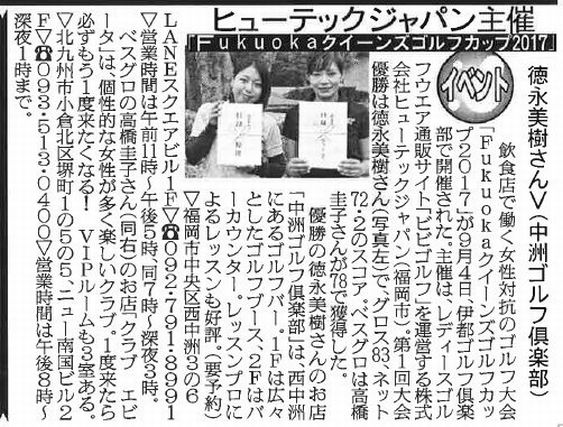 ヒューテックジャパン主催
「Fukuokaクイーンズゴルフカップ2017」
イベント
徳永美樹さんV(中洲ゴルフ倶楽部)
飲食店で働く女性対抗のゴルフ大会
「Fukuokaクイーンズゴルフカッ
プ2017」が9月4日、伊都ゴルフ倶楽
部で開催された。主催は、レディースゴル
フウエア通販サイト「ビビゴルフ」を運営する株式
会社ヒューテックジャパン(福岡市)。第1回大会
優勝は徳永美樹さん(写真左)で、グロス83、ネット
72・2のスコア。ベスグロは高橋
圭子さんが78で獲得した。
優勝の徳永美樹さんのお店
「中洲ゴルフ倶楽部」は、西中洲
にあるゴルフバー。1Fは広々
としたゴルフブース、2Fはバ
ーカウンター。レッスンプロに
よるレッスンも好評。(要予約)
▽福岡市中央区西中洲3の6
LANEスクエアビル1F▽☎092・791・8991
▽営業時間は午前11時〜午後5時、同7時〜深夜3時。
ベスグロの高橋圭子さん(同右)のお店「クラブ エビ
ータ」は、個性的な女性が多く楽しいクラブ。1度来たら
必ずもう1度来たくなる! VIPルームも3室ある。
▽北九州市小倉北区堺町1の5の5、ニュー南国ビル2
F▽☎093・513・0400▽営業時間は午後8時〜
深夜1時まで。